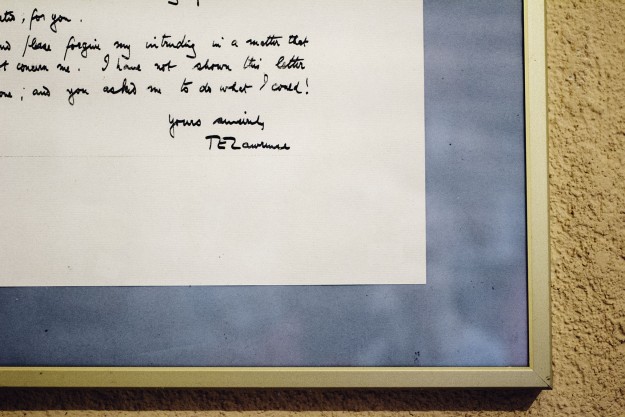 for you.
please forgive my intruding in a matter that
concern me. I have not shown this letter
and you asked me to do what I could!
Yours sincerely
TELawrence